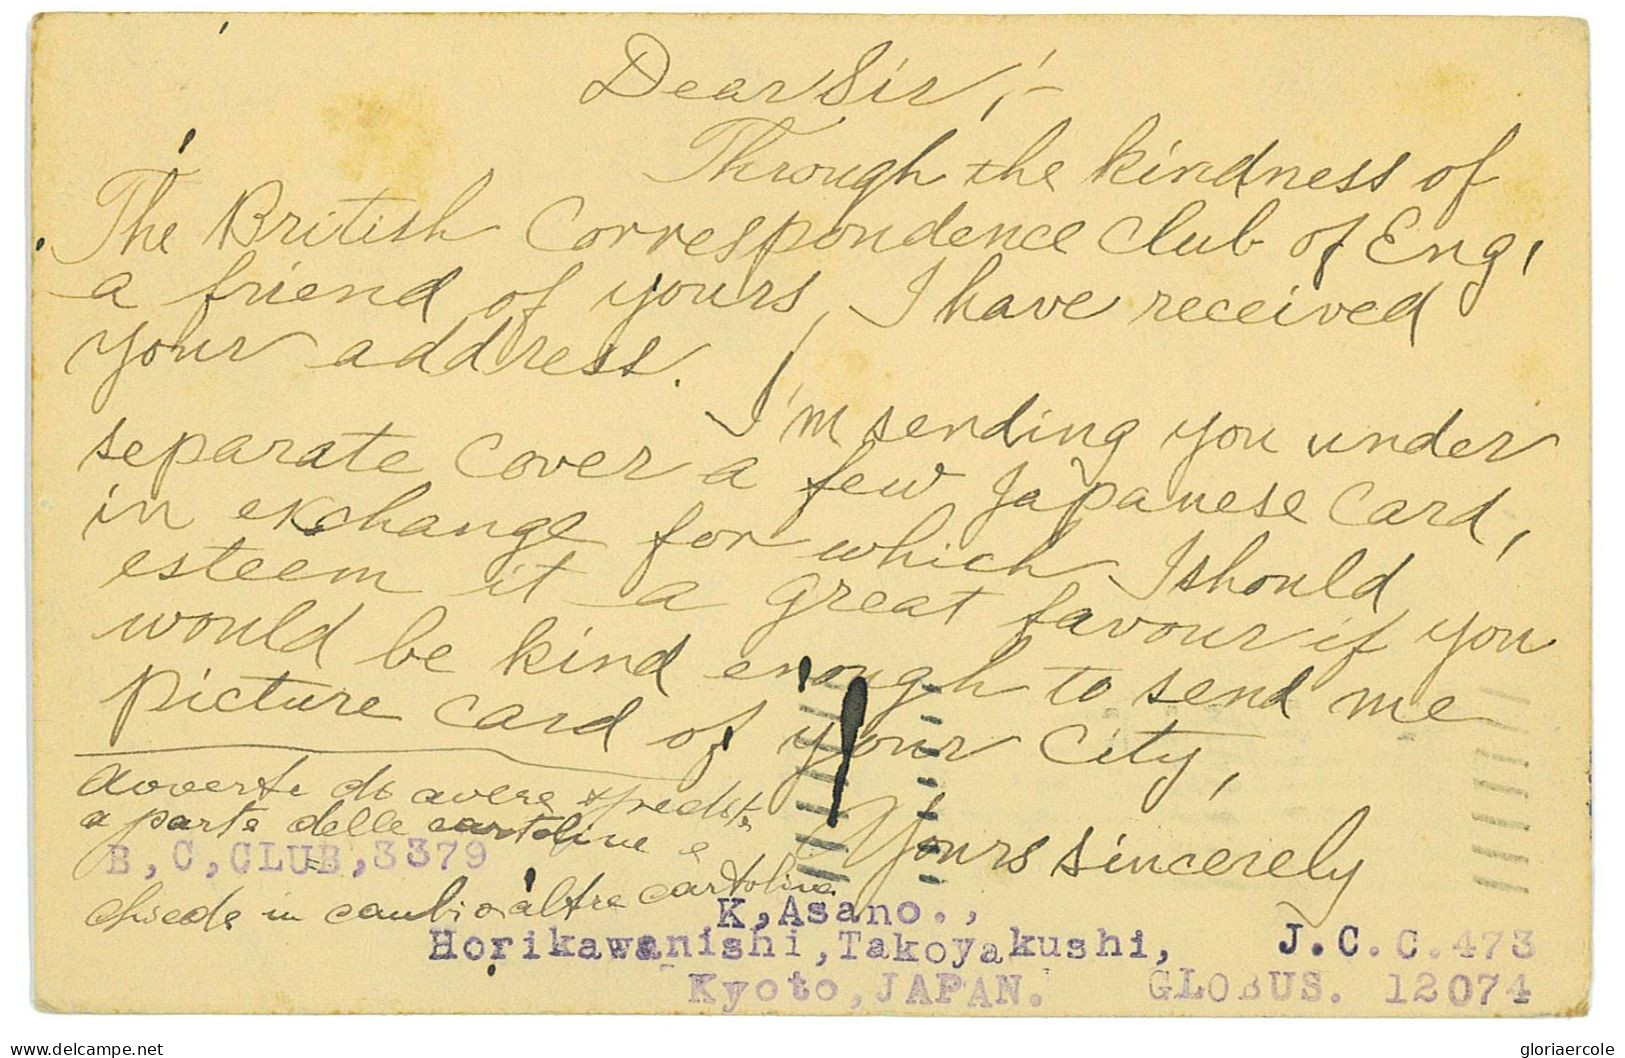 Dear Sir,-
Through the kindness of
The British Correspondence Club of Eng,
a friend of yours, I have received
your address.
I'm sending you under
separate cover a few Japanese Card,
in exchange for which I should
esteem it a great favour if you
would be kind enough to send me
Picture Card of your City,
Yours sincerely
avverte di avere spedito
a parte delle cartoline e
B,C,CLUB,3379
chiede in cambio altre cartoline
K,Asano.,
Horikawanishi,Takoyakushi, J.C.C.473
Kyoto,JAPAN. GLOBUS. 12074
delcampe.net
gloriaercole